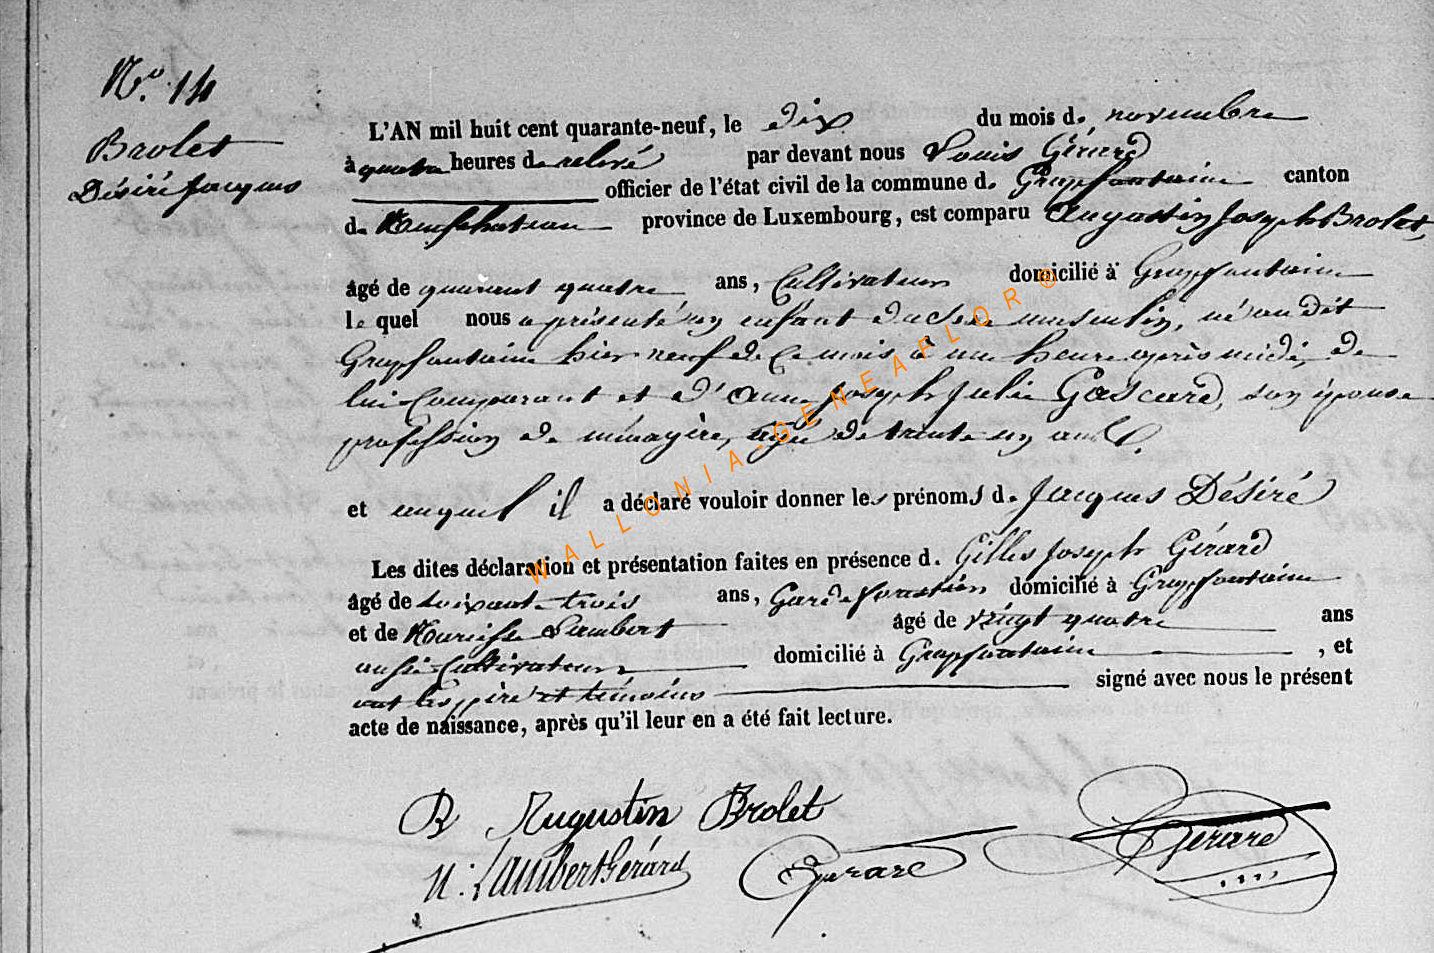 N.º 14
Brolet
Désiré Jacques
L'AN mil huit cent quarante-neuf, le dix du mois d. novembre
à quatre heures de relevé par devant nous Louis Gérard
officier de l'état civil de la commune d. Grapfontaine canton
d. Neufchateau province de Luxembourg, est comparu Augustin Joseph Brolet,
âgé de quarant quatre ans, Cultivateur domicilié à Grapfontaine
le quel nous a présenté un enfant du sexe masculin, né au dit
Grapfontaine hier neuf de ce mois à une heure après midi, de
lui Comparant et d'Anne Joseph Julie Gascard, son épouse
profession de ménagère, agée de trente un ans.
et auquel il a déclaré vouloir donner les prénoms d. Jacques Désiré
Les dites déclaration et présentation faites en présence d. Gilles Joseph Gérard
âgé de soixante-trois ans, Garde forestier domicilié à Grapfontaine
et de Lambert âgé de vingt quatre ans
aussi Cultivateur domicilié à Grapfontaine , et
ont les père et témoins signé avec nous le présent
acte de naissance, après qu'il leur en a été fait lecture.
Augustin Brolet
N: Lambert Gérard Gerard Gerard
WALLONIA-GENEAFLOR®